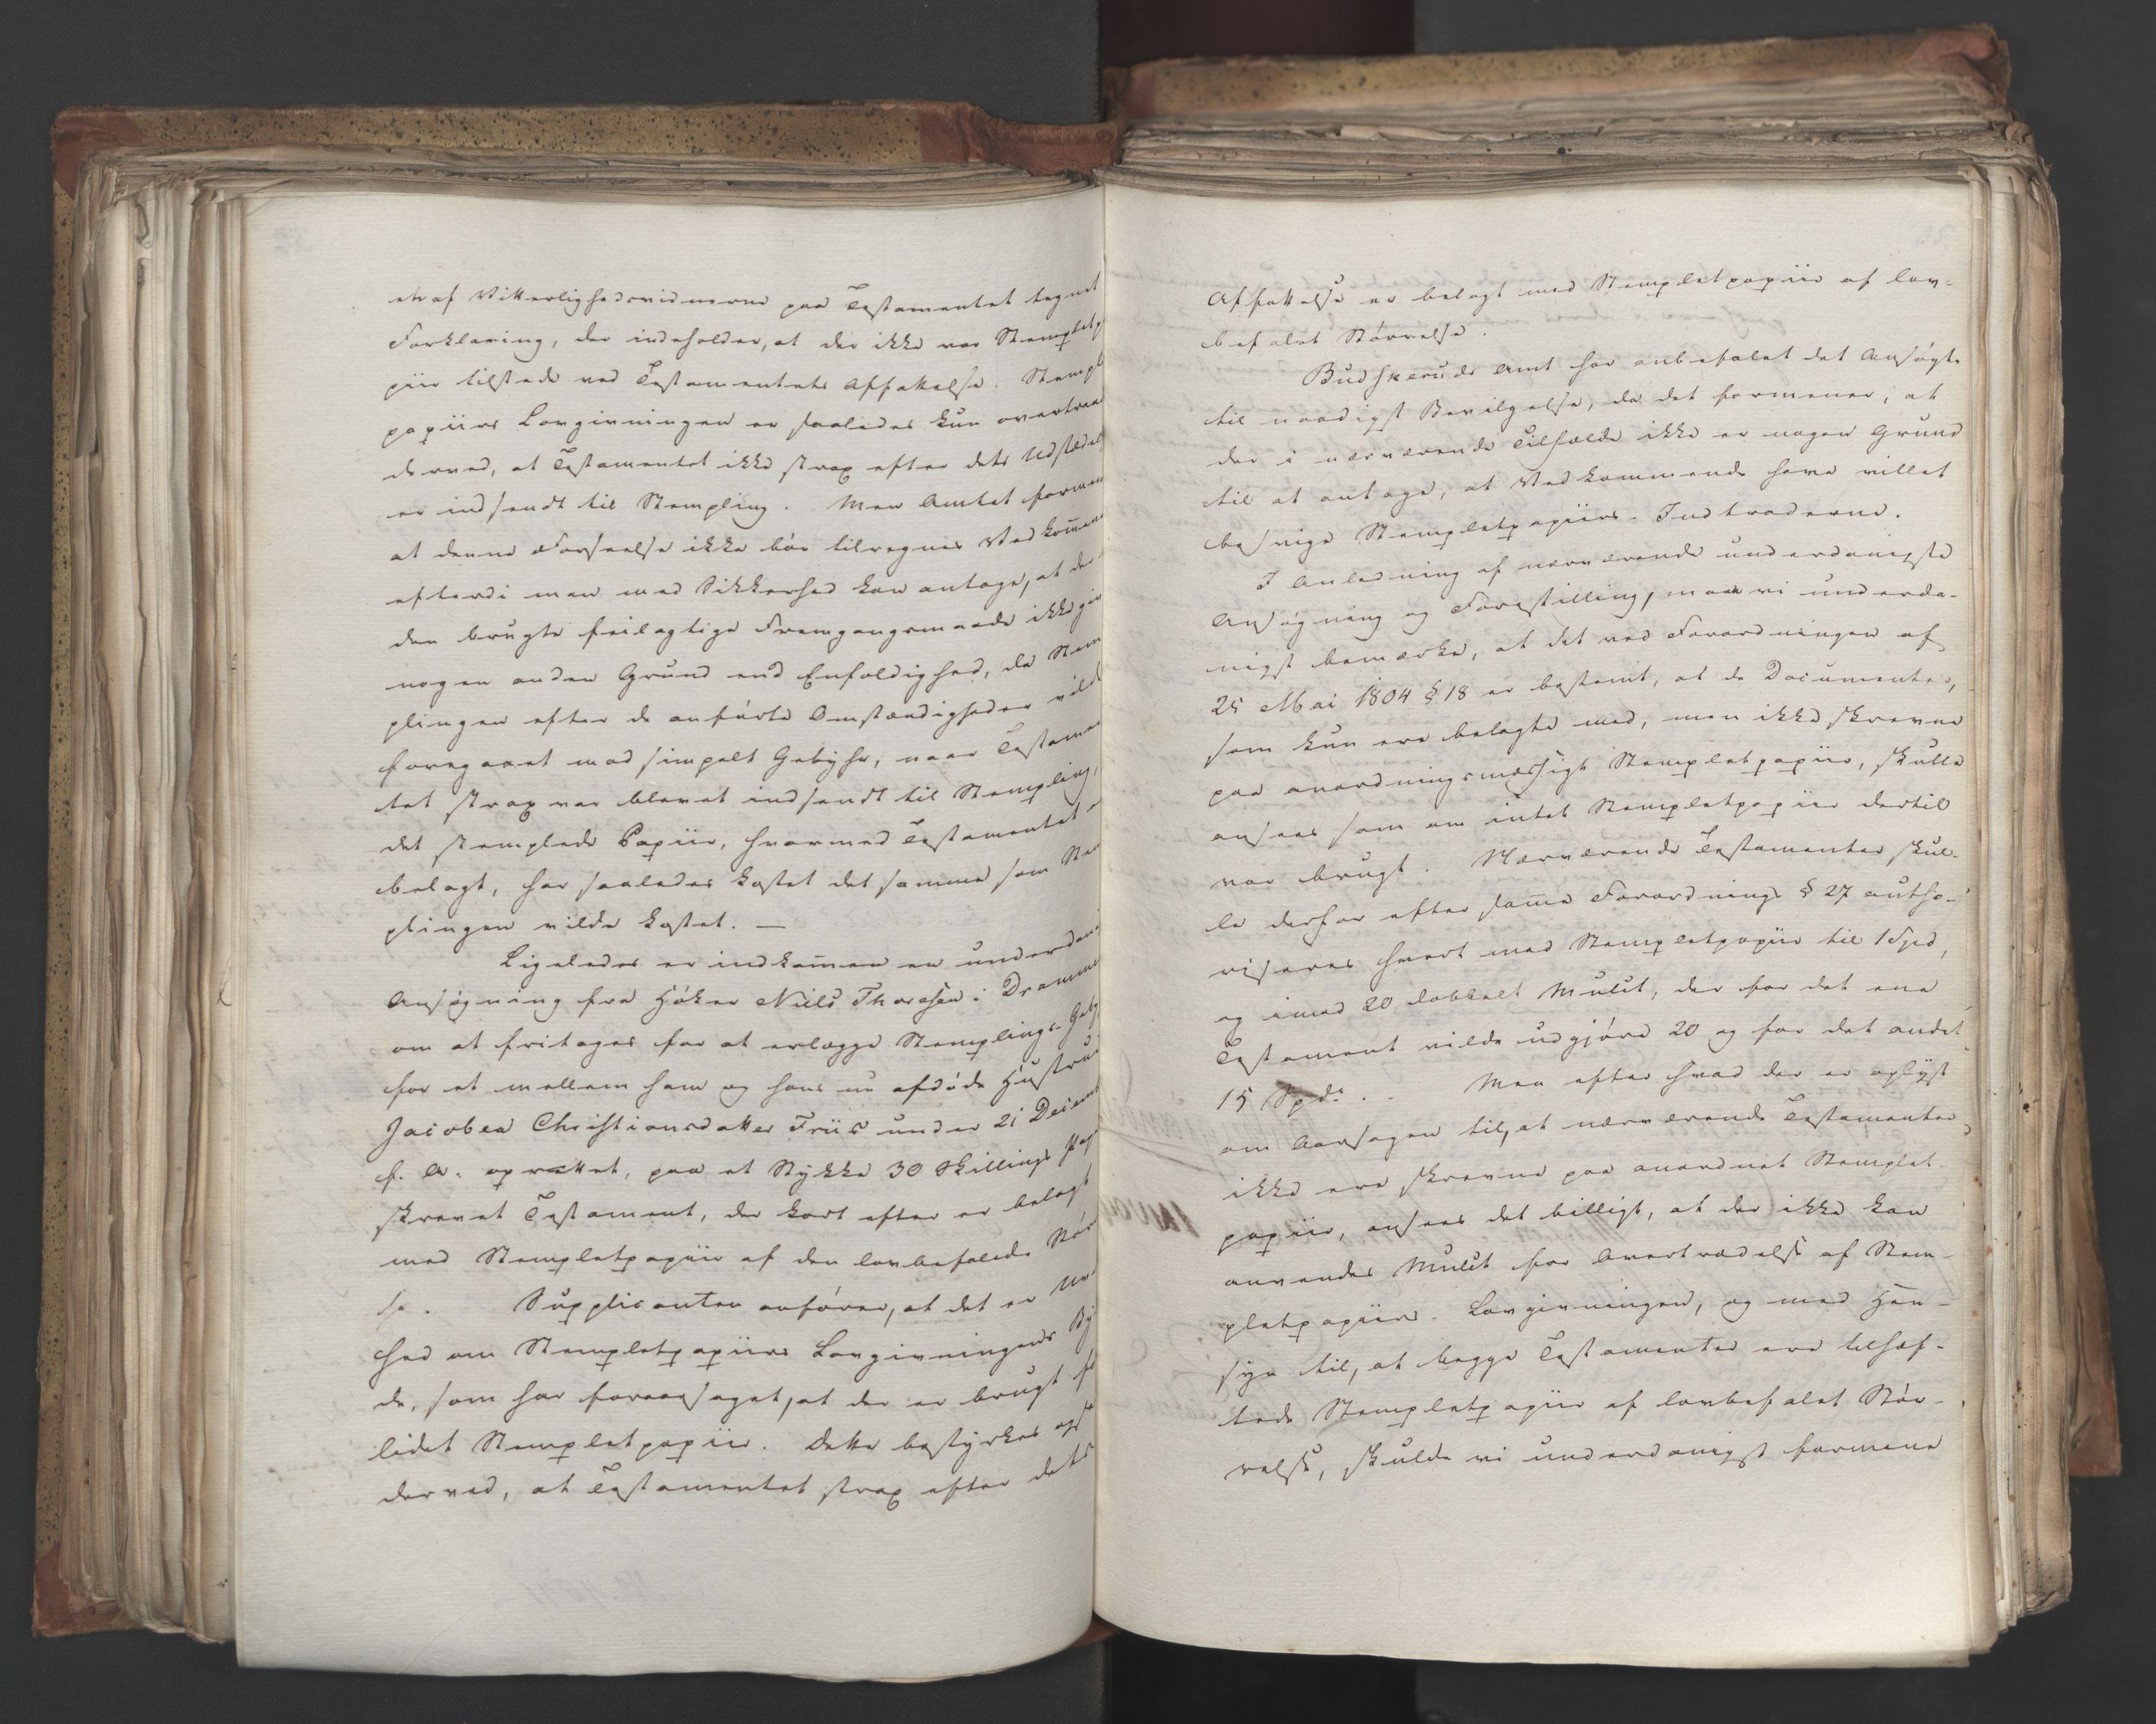 en af Vitterlighedsvidnerne paa Testamentet tegnet
Forklaring, der indeholder, at der ikke var Stempletp
piir tilstede ved Testamentets Affattelse. Stempl
papiirs Lovgivningen er saaledes kun overtraa
derved, at Testamentet ikke strax efter dets Udstedel
er indsendt til Stempling. Men Amtet formen
at denne Forseelse ikke bør tilregnes Vedkom̄ene
efterdi man med Sikkerhed kan antage, at der
den brugte feilagtige Fremgangsmaade ikke gi
nogen anden Grund end Enfoldighed, da Stem
plingen efter de anførte Omstændigheder vilde
foregaaet med simpelt Gebyhr, naar Testamen
tet strax var blevet indsendt til Stempling,
det stemplede Papiir, hvormed Testamentet e
belagt, har saaledes kostet det samme som Stem
plingen vilde kostet. —
Ligeledes er indkom̄en en underdan
Ansøgning fra Høker Niels Thoresen i Dramme
om at fritages for at erlægge Stemplings-Geb
for et mellem ham og hans nu afdøde Hustru
Jacobea Christiansdatter Friis under 21 Decem
f. A. oprettet, paa et Stykke 30 Skillings Pap
skrevet Testament, der kort efter er belagt
med Stempletpapiir af den lovbefalede Stør
se. Supplicanten anfører, at det er Uvi
hed om Stempletpapiirs Lovgivningens By
de, som har foraarsaget, at der er brugt f
lidet Stempletpapiir. Dette bestyrkes ogs
derved, at Testamentet strax efter dets
Affattelse er belagt med Stempletpapiir af lov-
befalet Størrelse.
Budskeruds Amt har anbefalet det Ansøgte
til naadigst Bevilgelse, da det formener, at
der i nærværende Tilfælde ikke er nogen Grund
til at antage, at Vedkommende have villet
besvige Stempletpapiirs-Indtraderne.
I Anledning af nærværende underdanigste
Ansøgning og Forestilling, maae vi underda-
nigst bemærke, at det ved Forordningen af
25 Mai 1804 § 18 er bestemt, at de Documenter,
som kun ere belagte med, men ikke skrevne
paa anordningsmæssigt Stempletpapiir, skulle
ansees som om intet Stempletpapiir dertil
var brugt. Nærværende Testamenter skul-
le derfor efter sam̄e Forordnings § 27 autho-
riseres hvert med Stempletpapiir til 1 Spd,
og imod 20 dobbelt Mulct, der for det ene
Testament vilde udgjøre 20 og for det andet
15 Spdr. - Men efter hvad der er oplyst
om Aarsagen til, at nærværende Testamenter
ikke ere skrevne paa anordnet Stemplet-
papiir, ansees det billigt, at der ikke kan
anvendes Mulct for Overtrædelse af Stem-
pletpapiirs-Lovgivningen, og med Hen-
syn til, at begge Testamenter ere tilhæf-
tede Stempletpapiir af lovbefalet Stør-
relse, skulde vi underdanigst formene